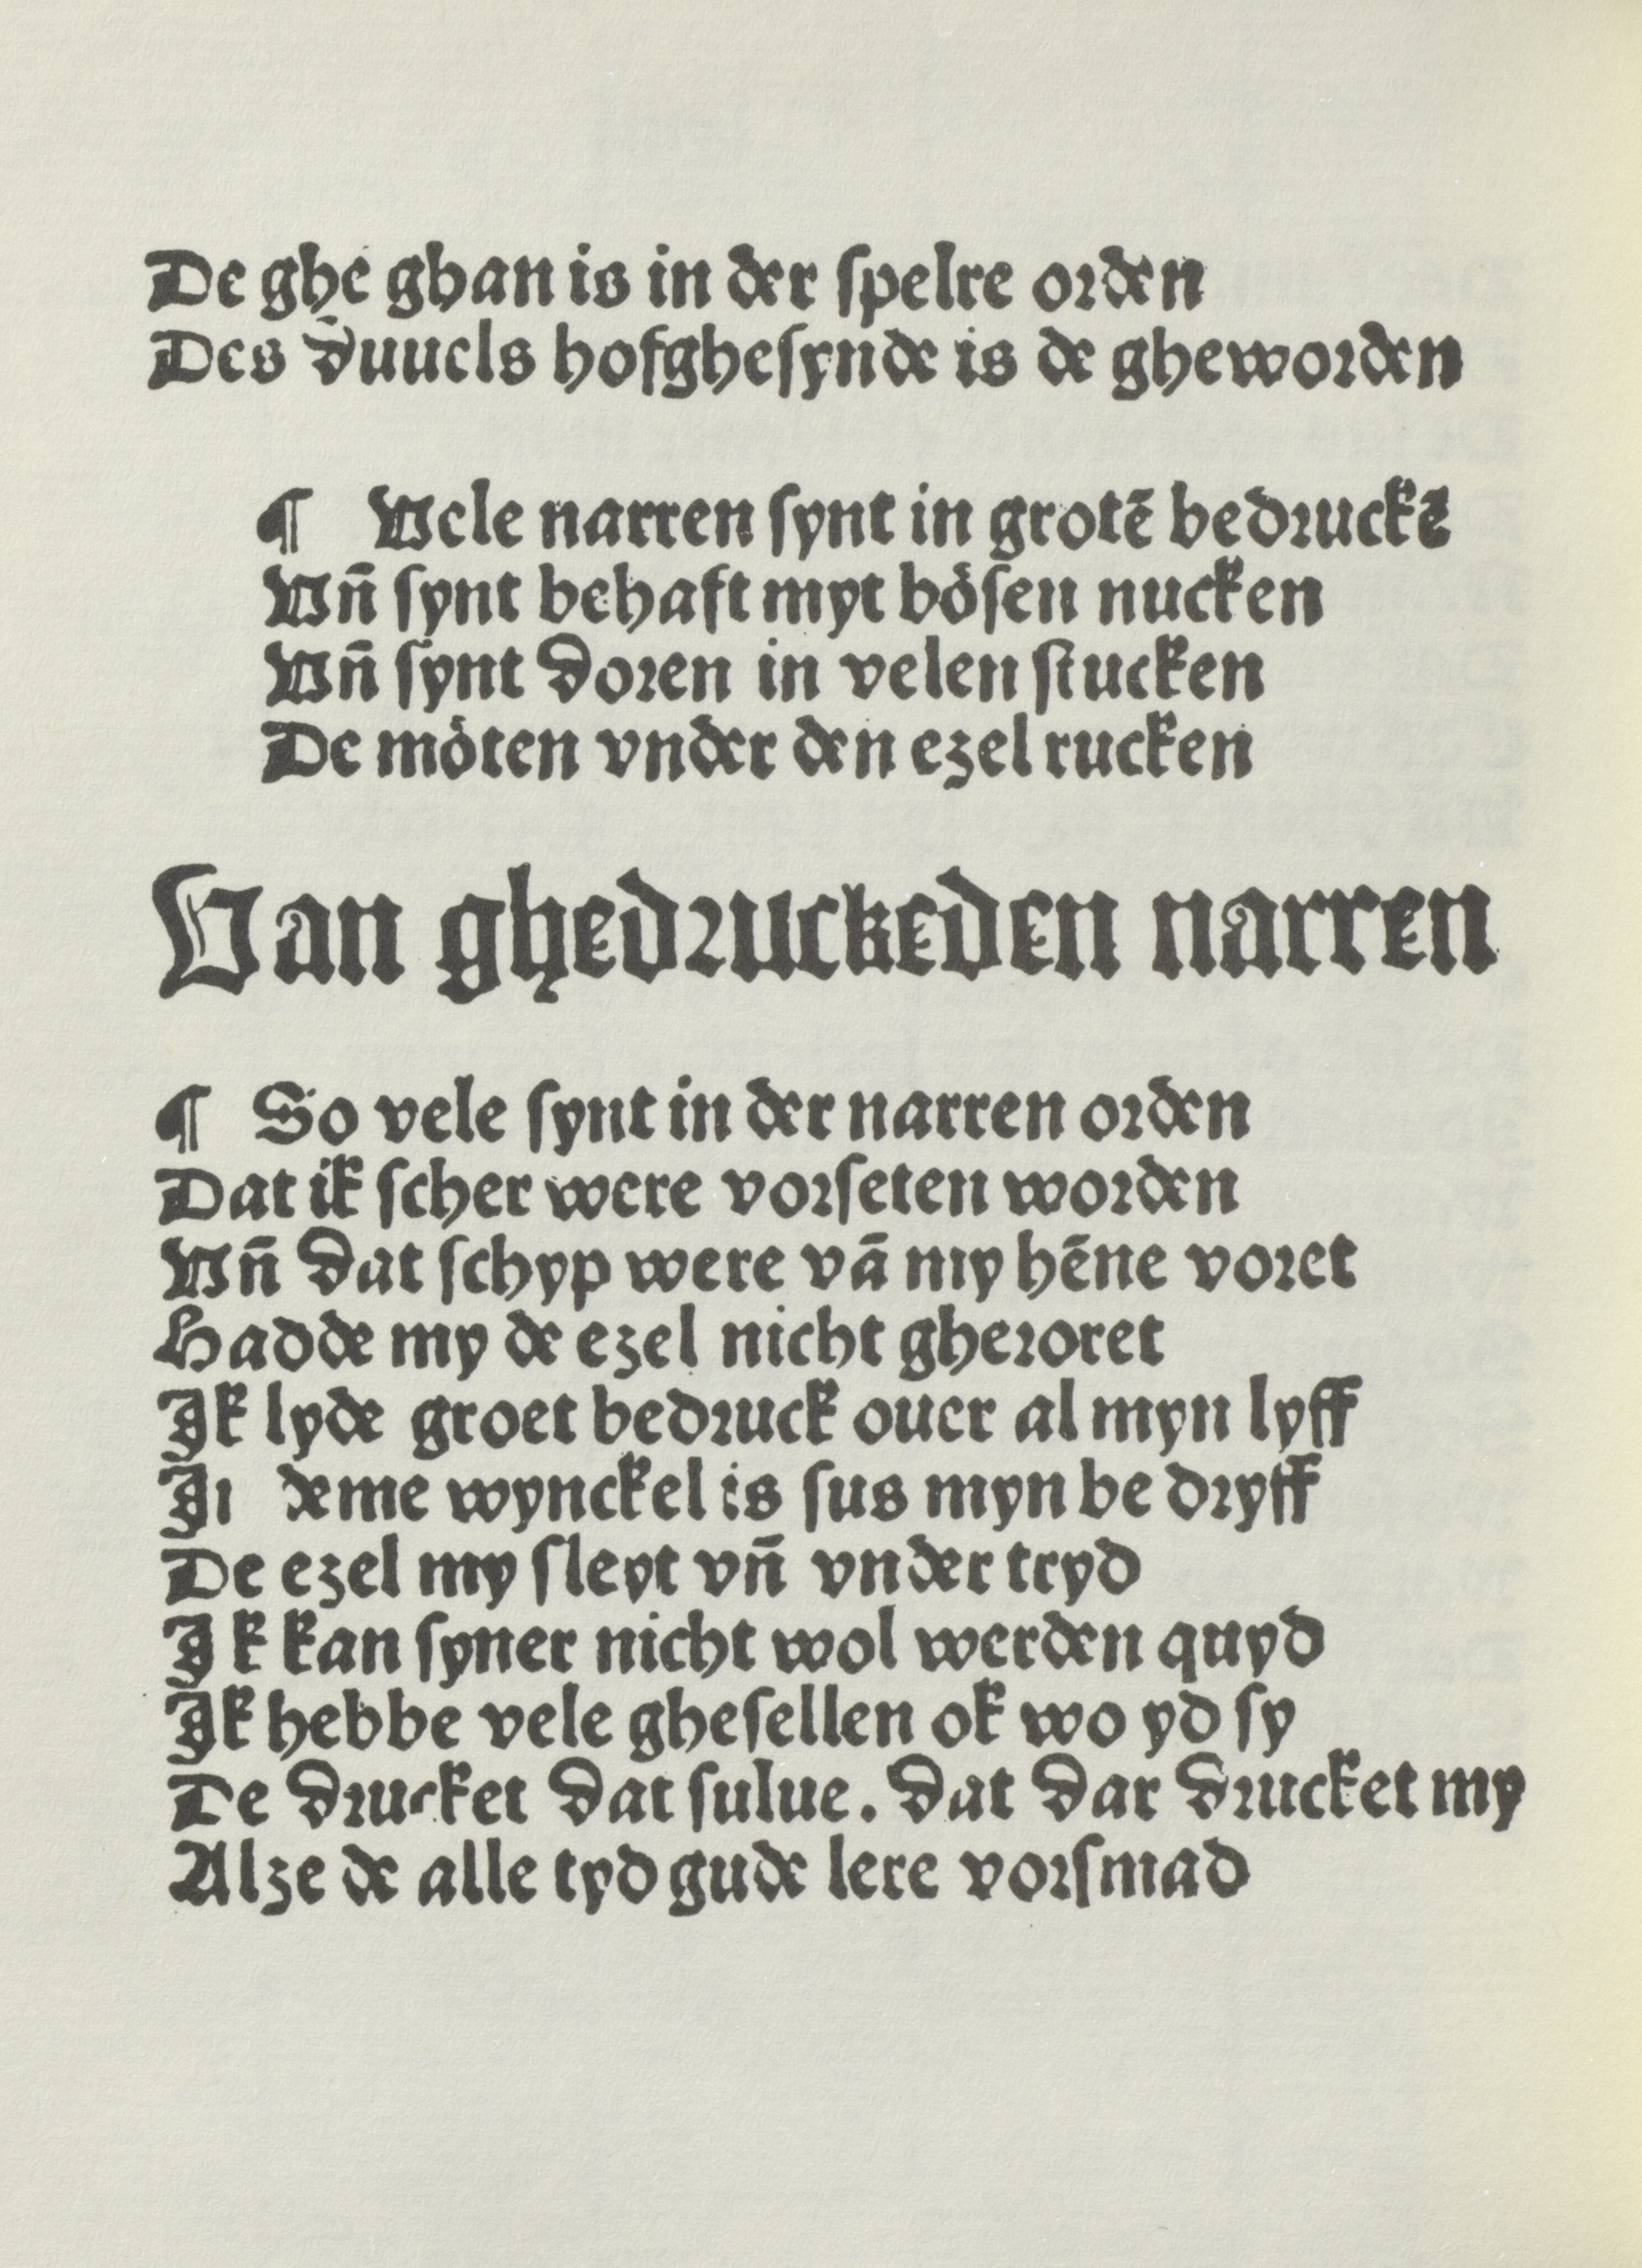 De ghe ghan is in der ſpelre orden
Des duuels hofgheſynde is de gheworden
¶ Vele narren ſynt in grotē bedruckē
Vn̄ ſynt behaft myt bȯſen nucken
Vn̄ ſynt doren in velen ſtucken
De mȯten vnder den ezel rucken
Van ghedruckeden narren
¶ So vele ſynt in der narren orden
Dat ik ſcher were vorſeten worden
Vn̄ dat ſchyp were vā my hēne voret
Hadde my de ezel nicht gheroret
Ik lyde groet bedruck ouer al myn lyff
In deme wynckel is ſus myn be dryff
De ezel my ſleyt vn̄ vnder tryd
Ik kan ſyner nicht wol werden quyd
Ik hebbe vele gheſellen ok wo yd ſy
De drucket dat ſulue. dat dar drucket my
Alze de alle tyd gude lere vorſmad